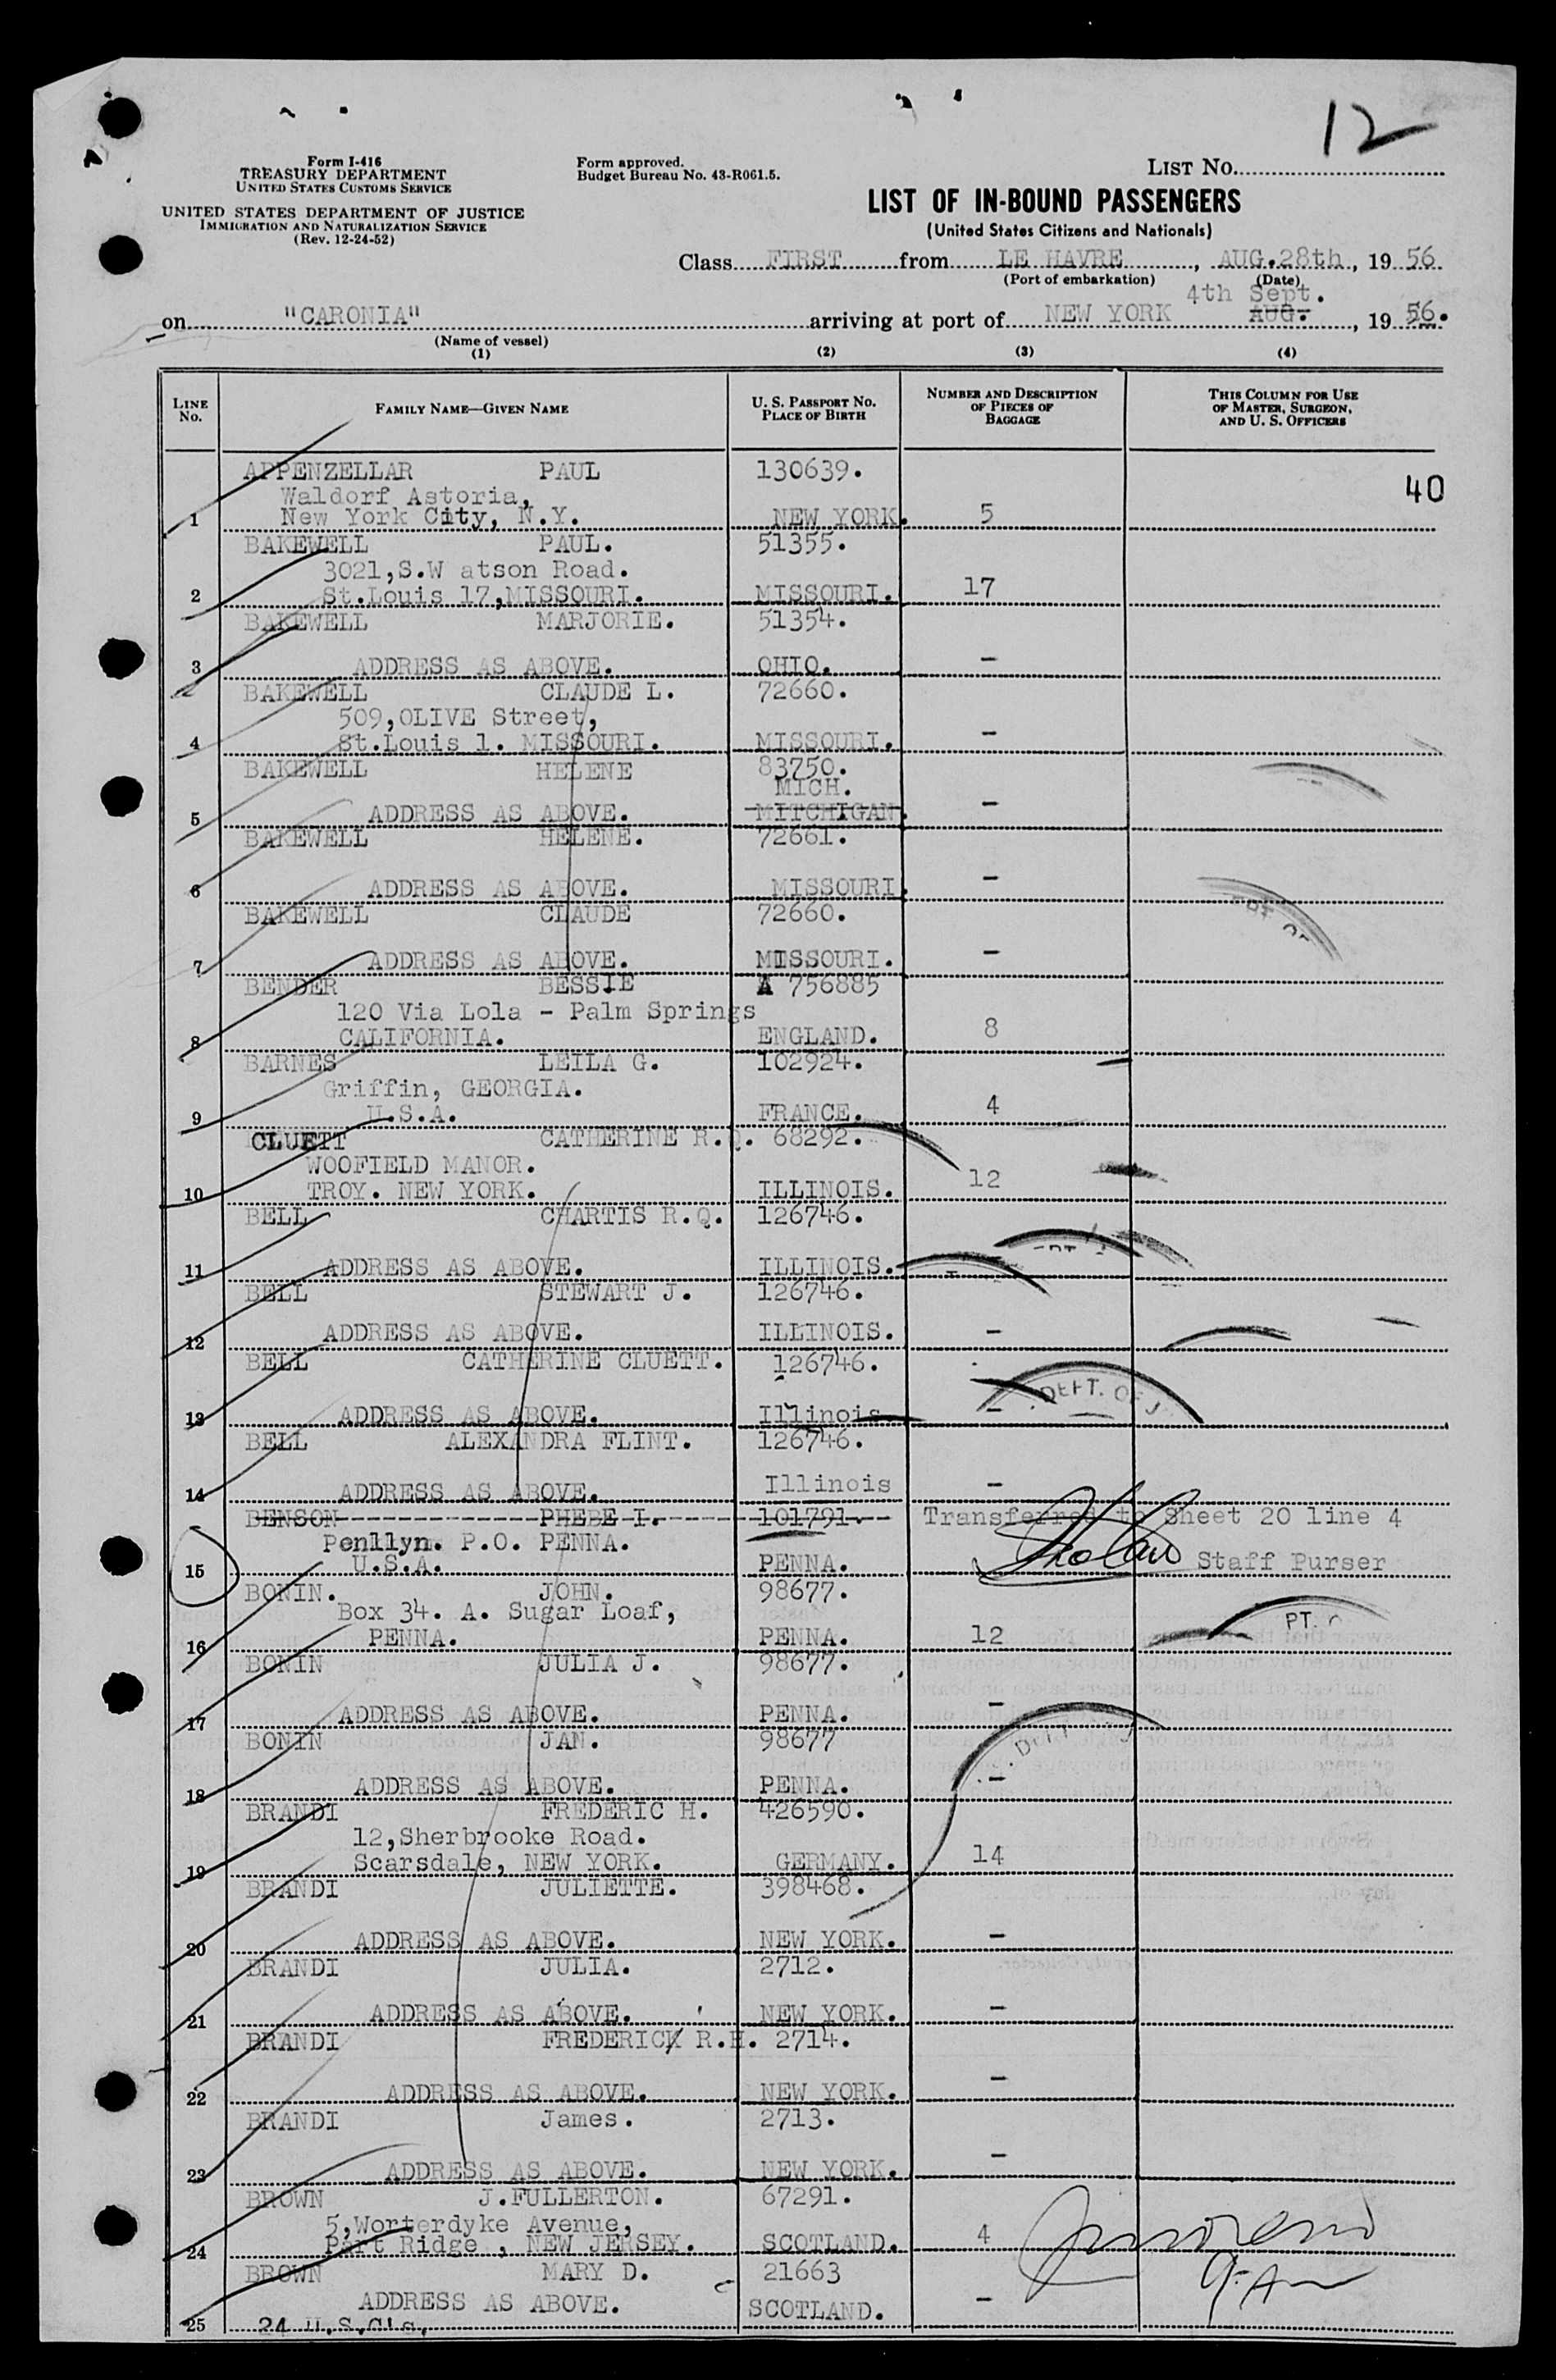 12
Form I-416
TREASURY DEPARTMENT
UNITED STATES CUSTOMS SERVICE
UNITED STATES DEPARTMENT OF JUSTICE
IMMIGRATION AND NATURALIZATION SERVICE
(Rev. 12-24-52)
Form approved.
Budget Bureau No. 43-R061.5.
LIST No.
LIST OF IN-BOUND PASSENGERS
(United States Citizens and Nationals)
Class FIRST from LE HAVRE, AUG.28th, 19 56
(Port of embarkation) (Date)
4th Sept.
on "CARONIA" arriving at port of NEW YORK AUG., 19 56.
(Name of vessel)
(1) (2) (3) (4)
LINE No. FAMILY NAME—GIVEN NAME U. S. PASSPORT No. PLACE OF BIRTH NUMBER AND DESCRIPTION OF PIECES OF BAGGAGE THIS COLUMN FOR USE OF MASTER, SURGEON, AND U. S. OFFICERS
APPENZELLAR PAUL 130639.
40
Waldorf Astoria,
1 New York City, N.Y. NEW YORK. 5
BAKEWELL PAUL. 51355.
3021,S.W atson Road.
2 St.Louis 17,MISSOURI. MISSOURI. 17
BAKEWELL MARJORIE. 51354.
3 ADDRESS AS ABOVE. OHIO. -
BAKEWELL CLAUDE L. 72660.
509,OLIVE Street,
4 St.Louis 1. MISSOURI. MISSOURI. -
BAKEWELL HELENE 83750.
MICH.
5 ADDRESS AS ABOVE. MITCHIGAN. -
BAKEWELL HELENE. 72661.
6 ADDRESS AS ABOVE. MISSOURI. -
BAKEWELL CLAUDE 72660.
7 ADDRESS AS ABOVE. MISSOURI. -
BENDER BESSIE A 756885
120 Via Lola - Palm Springs
8 CALIFORNIA. ENGLAND. 8
BARNES LEILA G. 102924.
Griffin, GEORGIA.
9 U.S.A. FRANCE. 4
CLUETT CATHERINE R.Q. 68292.
WOOFIELD MANOR.
10 TROY. NEW YORK. ILLINOIS. 12
BELL CHARTIS R.Q. 126746.
11 ADDRESS AS ABOVE. ILLINOIS.
BELL STEWART J. 126746.
12 ADDRESS AS ABOVE. ILLINOIS. -
BELL CATHERINE CLUETT. 126746.
DEPT. OF J
13 ADDRESS AS ABOVE. Illinois -
BELL ALEXANDRA FLINT. 126746.
14 ADDRESS AS ABOVE. Illinois -
BENSON PHEBE I. 101791. Transferred to Sheet 20 line 4
Penllyn. P.O. PENNA.
15 U.S.A. PENNA. Staff Purser
BONIN. JOHN. 98677.
Box 34. A. Sugar Loaf,
PT.
16 PENNA. PENNA. 12
BONIN JULIA J. 98677.
17 ADDRESS AS ABOVE. PENNA. -
BONIN JAN. 98677
18 ADDRESS AS ABOVE. PENNA. -
BRANDI FREDERIC H. 426590.
12,Sherbrooke Road.
19 Scarsdale, NEW YORK. GERMANY. 14
BRANDI JULIETTE. 398468.
20 ADDRESS AS ABOVE. NEW YORK. -
BRANDI JULIA. 2712.
21 ADDRESS AS ABOVE. NEW YORK. -
BRANDI FREDERICK R.H. 2714.
22 ADDRESS AS ABOVE. NEW YORK. -
BRANDI James. 2713.
23 ADDRESS AS ABOVE. NEW YORK. -
BROWN J.FULLERTON. 67291.
5,Worterdyke Avenue,
24 Part Ridge , NEW JERSEY. SCOTLAND. 4
BROWN MARY D. 21663
ADDRESS AS ABOVE. SCOTLAND. -
25 24 U.S.C's.